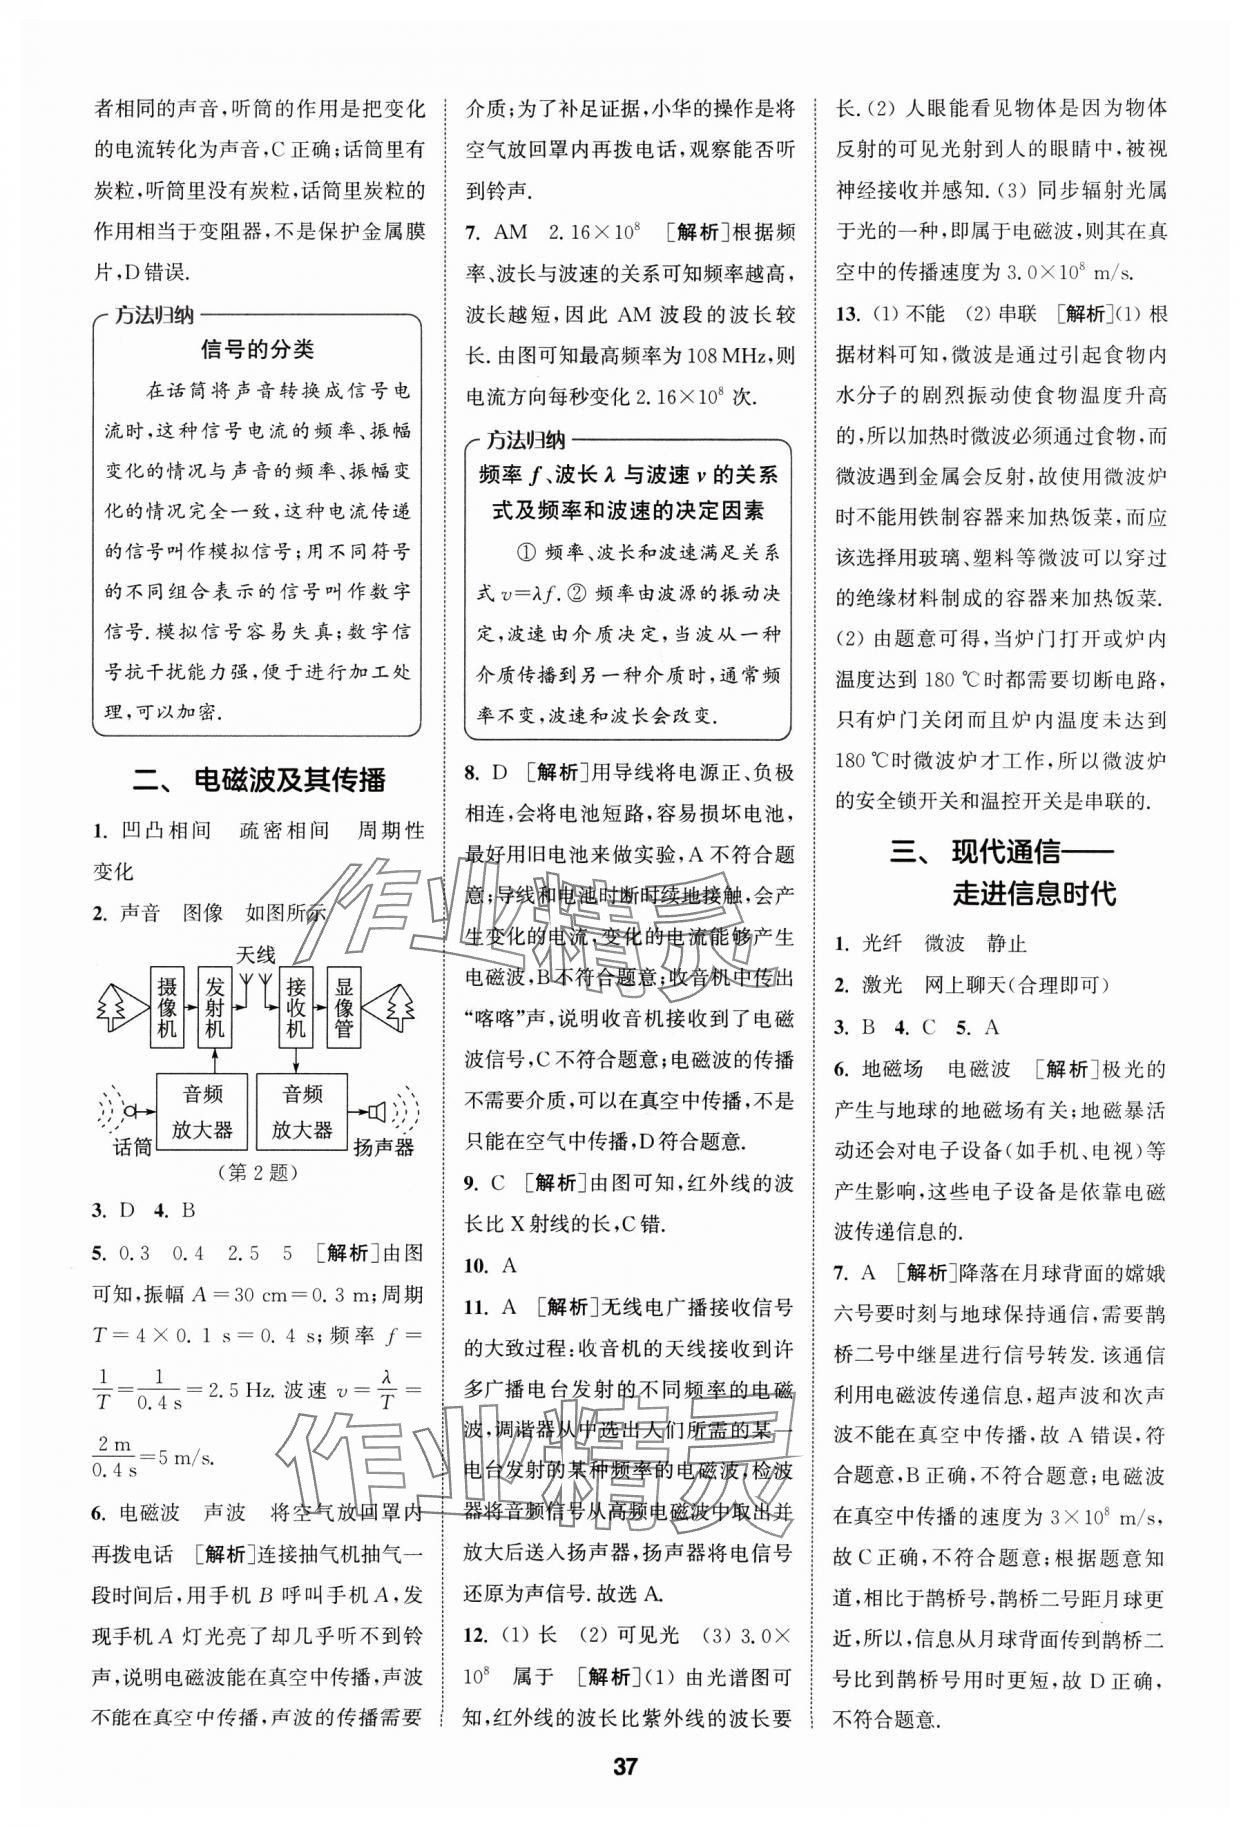 者相同的声音,听筒的作用是把变化
的电流转化为声音,C正确;话筒里有
炭粒,听筒里没有炭粒,话筒里炭粒的
作用相当于变阻器,不是保护金属膜
片,D错误.
方法归纳
信号的分类
在话筒将声音转换成信号电
流时,这种信号电流的频率、振幅
变化的情况与声音的频率、振幅变
化的情况完全一致,这种电流传递
的信号叫作模拟信号;用不同符号
的不同组合表示的信号叫作数字
信号.模拟信号容易失真;数字信
号抗干扰能力强,便于进行加工处
理,可以加密.
二、 电磁波及其传播
1. 凹凸相间 疏密相间 周期性
变化
2. 声音 图像 如图所示
天线
摄像机
发射机
接收机
显像管
音频
放大器
音频
放大器
话筒
扬声器
(第2题)
3. D 4. B
5. 0.3 0.4 2.5 5 [解析]由图
可知,振幅 A=30 cm=0.3 m;周期
T=4×0.1 s=0.4 s;频率 f=
1/T=1/0.4 s=2.5 Hz.波速 v=λ/T=
2 m/0.4 s=5 m/s.
6. 电磁波 声波 将空气放回罩内
再拨电话 [解析]连接抽气机抽气一
段时间后,用手机 B 呼叫手机 A,发
现手机 A 灯光亮了却几乎听不到铃
声,说明电磁波能在真空中传播,声波
不能在真空中传播,声波的传播需要
介质;为了补足证据,小华的操作是将
空气放回罩内再拨电话,观察能否听
到铃声.
7. AM 2.16×10⁸ [解析]根据频
率、波长与波速的关系可知频率越高,
波长越短,因此 AM 波段的波长较
长.由图可知最高频率为 108 MHz,则
电流方向每秒变化 2.16×10⁸ 次.
方法归纳
频率 f、波长 λ 与波速 v 的关系
式及频率和波速的决定因素
① 频率、波长和波速满足关系
式 v=λf.② 频率由波源的振动决
定,波速由介质决定,当波从一种
介质传播到另一种介质时,通常频
率不变,波速和波长会改变.
8. D [解析]用导线将电源正、负极
相连,会将电池短路,容易损坏电池,
最好用旧电池来做实验,A 不符合题
意;导线和电池时断时续地接触,会产
生变化的电流,变化的电流能够产生
电磁波,B不符合题意;收音机中传出
“喀喀”声,说明收音机接收到了电磁
波信号,C不符合题意;电磁波的传播
不需要介质,可以在真空中传播,不是
只能在空气中传播,D符合题意.
9. C [解析]由图可知,红外线的波
长比 X 射线的长,C错.
10. A
11. A [解析]无线电广播接收信号
的大致过程:收音机的天线接收到许
多广播电台发射的不同频率的电磁
波,调谐器从中选出人们所需的某一
电台发射的某种频率的电磁波,检波
器将音频信号从高频电磁波中取出并
放大后送入扬声器,扬声器将电信号
还原为声信号.故选 A.
12. (1) 长 (2) 可见光 (3) 3.0×
10⁸ 属于 [解析](1) 由光谱图可
知,红外线的波长比紫外线的波长要
长.(2) 人眼能看见物体是因为物体
反射的可见光射到人的眼睛中,被视
神经接收并感知.(3) 同步辐射光属
于光的一种,即属于电磁波,则其在真
空中的传播速度为 3.0×10⁸ m/s.
13. (1) 不能 (2) 串联 [解析](1) 根
据材料可知,微波是通过引起食物内
水分子的剧烈振动使食物温度升高
的,所以加热时微波必须通过食物,而
微波遇到金属会反射,故使用微波炉
时不能用铁制容器来加热饭菜,而应
该选择用玻璃、塑料等微波可以穿过
的绝缘材料制成的容器来加热饭菜.
(2) 由题意可得,当炉门打开或炉内
温度达到 180 ℃时都需要切断电路,
只有炉门关闭而且炉内温度未达到
180 ℃时微波炉才工作,所以微波炉
的安全锁开关和温控开关是串联的.
三、 现代通信——
走进信息时代
1. 光纤 微波 静止
2. 激光 网上聊天(合理即可)
3. B 4. C 5. A
6. 地磁场 电磁波 [解析]极光的
产生与地球的地磁场有关;地磁暴活
动还会对电子设备(如手机、电视)等
产生影响,这些电子设备是依靠电磁
波传递信息的.
7. A [解析]降落在月球背面的嫦娥
六号要时刻与地球保持通信,需要鹊
桥二号中继星进行信号转发.该通信
利用电磁波传递信息,超声波和次声
波不能在真空中传播,故 A 错误,符
合题意,B正确,不符合题意;电磁波
在真空中传播的速度为 3×10⁸ m/s,
故C正确,不符合题意;根据题意知
道,相比于鹊桥号,鹊桥二号距月球更
近,所以,信息从月球背面传到鹊桥二
号比到鹊桥号用时更短,故 D 正确,
不符合题意.
37
作业精灵
作业精灵